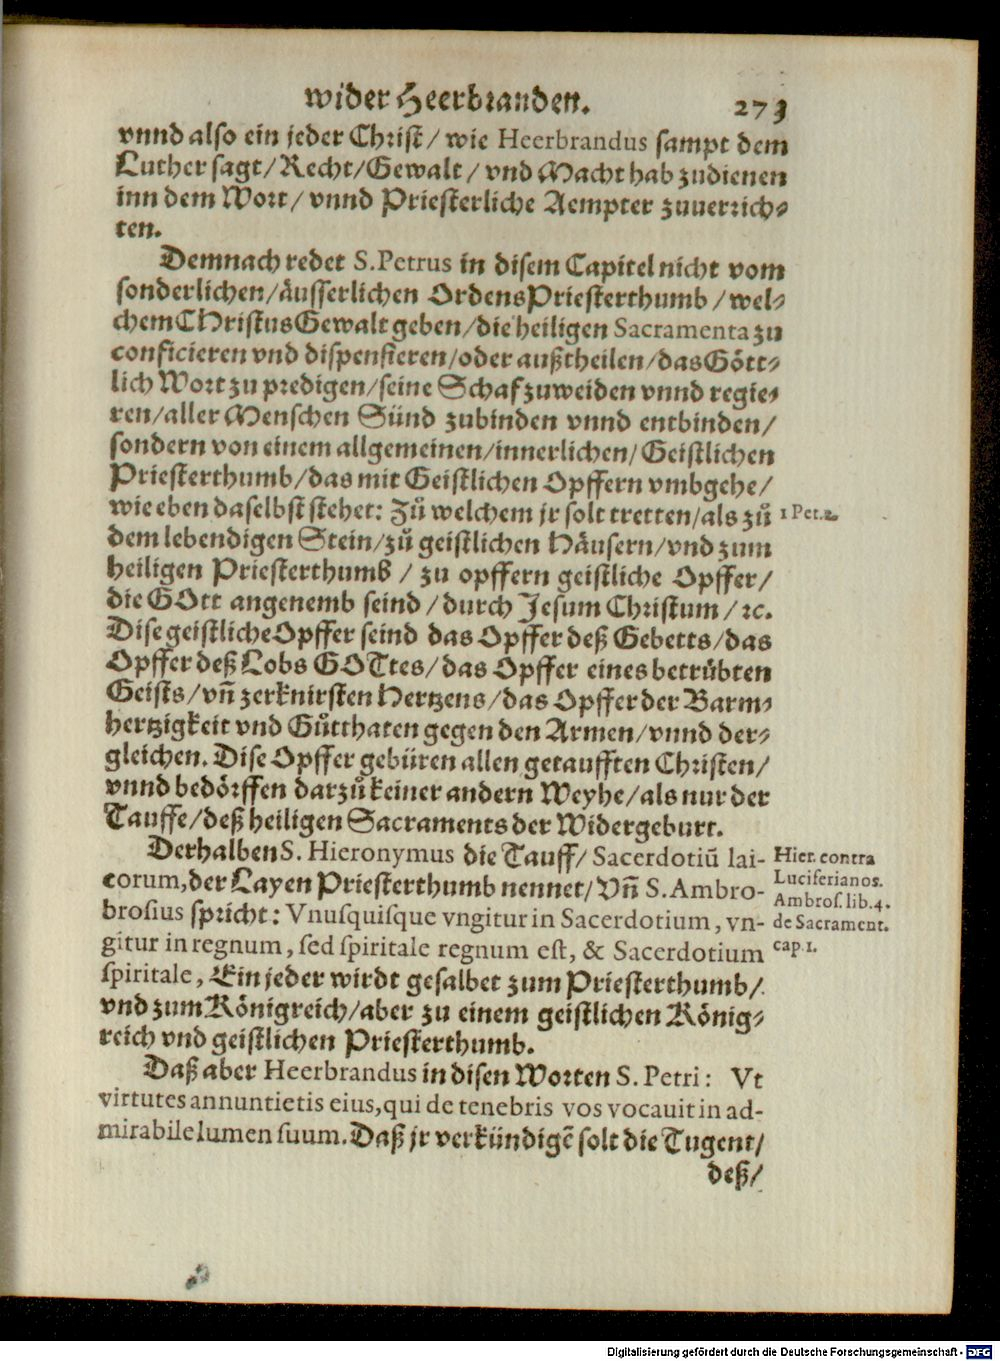 wider Heerbranden. 273
vnnd also ein jeder Christ/ wie Heerbrandus sampt dem
Luther sagt/ Recht/ Gewalt/ vnd Macht hab zudienen
inn dem Wort/ vnnd Priesterliche Aempter zuuerrich⸗
ten.
Demnach redet S. Petrus in disem Capitel nicht vom
sonderlichen/ äusserlichen OrdensPriesterthumb/ wel⸗
chem CHristus Gewalt geben/ die heiligen Sacramenta zu
conficieren vnd dispensieren/ oder außtheilen/ das Gött⸗
lich Wort zu predigen/ seine Schaf zuweiden vnnd regie⸗
ren/ aller Menschen Sünd zubinden vnnd entbinden/
sondern von einem allgemeinen/ innerlichen/ Geistlichen
Priesterthumb/ das mit Geistlichen Opffern vmbgehe/
wie eben daselbst stehet: Zů welchem jr solt tretten/ als zů
1 Pet. 2.
dem lebendigen Stein/ zů geistlichen Häusern/ vnd zum
heiligen Priesterthumb / zu opffern geistliche Opffer/
die GOtt angenemb seind / durch Jesum Christum / ꝛc.
Dise geistliche Opffer seind das Opffer deß Gebetts/ das
Opffer deß Lobs GOTtes/ das Opffer eines betrübten
Geists/ vñ zerknirsten Hertzens/ das Opffer der Barm⸗
hertzigkeit vnd Gůtthaten gegen den Armen/ vnnd der⸗
gleichen. Dise Opffer gebüren allen getaufften Christen/
vnnd bedörffen darzů keiner andern Weyhe/ als nur der
Tauffe/ deß heiligen Sacraments der Widergeburt.
Derhalben S. Hieronymus die Tauff/ Sacerdotiũ lai-
Hier. contra
corum, der Layen Priesterthumb nennet/ Vñ S. Ambro-
Luciferianos.
Ambros. lib. 4.
brosius spricht: Vnusquisque vngitur in Sacerdotium, vn-
de Sacrament.
gitur in regnum, sed spiritale regnum est, & Sacerdotium
cap 1.
spiritale, Ein jeder wirdt gesalbet zum Priesterthumb/
vnd zum Königreich/ aber zu einem geistlichen König⸗
reich vnd geistlichen Priesterthumb.
Daß aber Heerbrandus in disen Worten S. Petri: Vt
virtutes annuntietis eius, qui de tenebris vos vocauit in ad-
mirabile lumen suum. Daß jr verkündigẽ solt die Tugent/
deß/
Digitalisierung gefördert durch die Deutsche Forschungsgemeinschaft - DFG